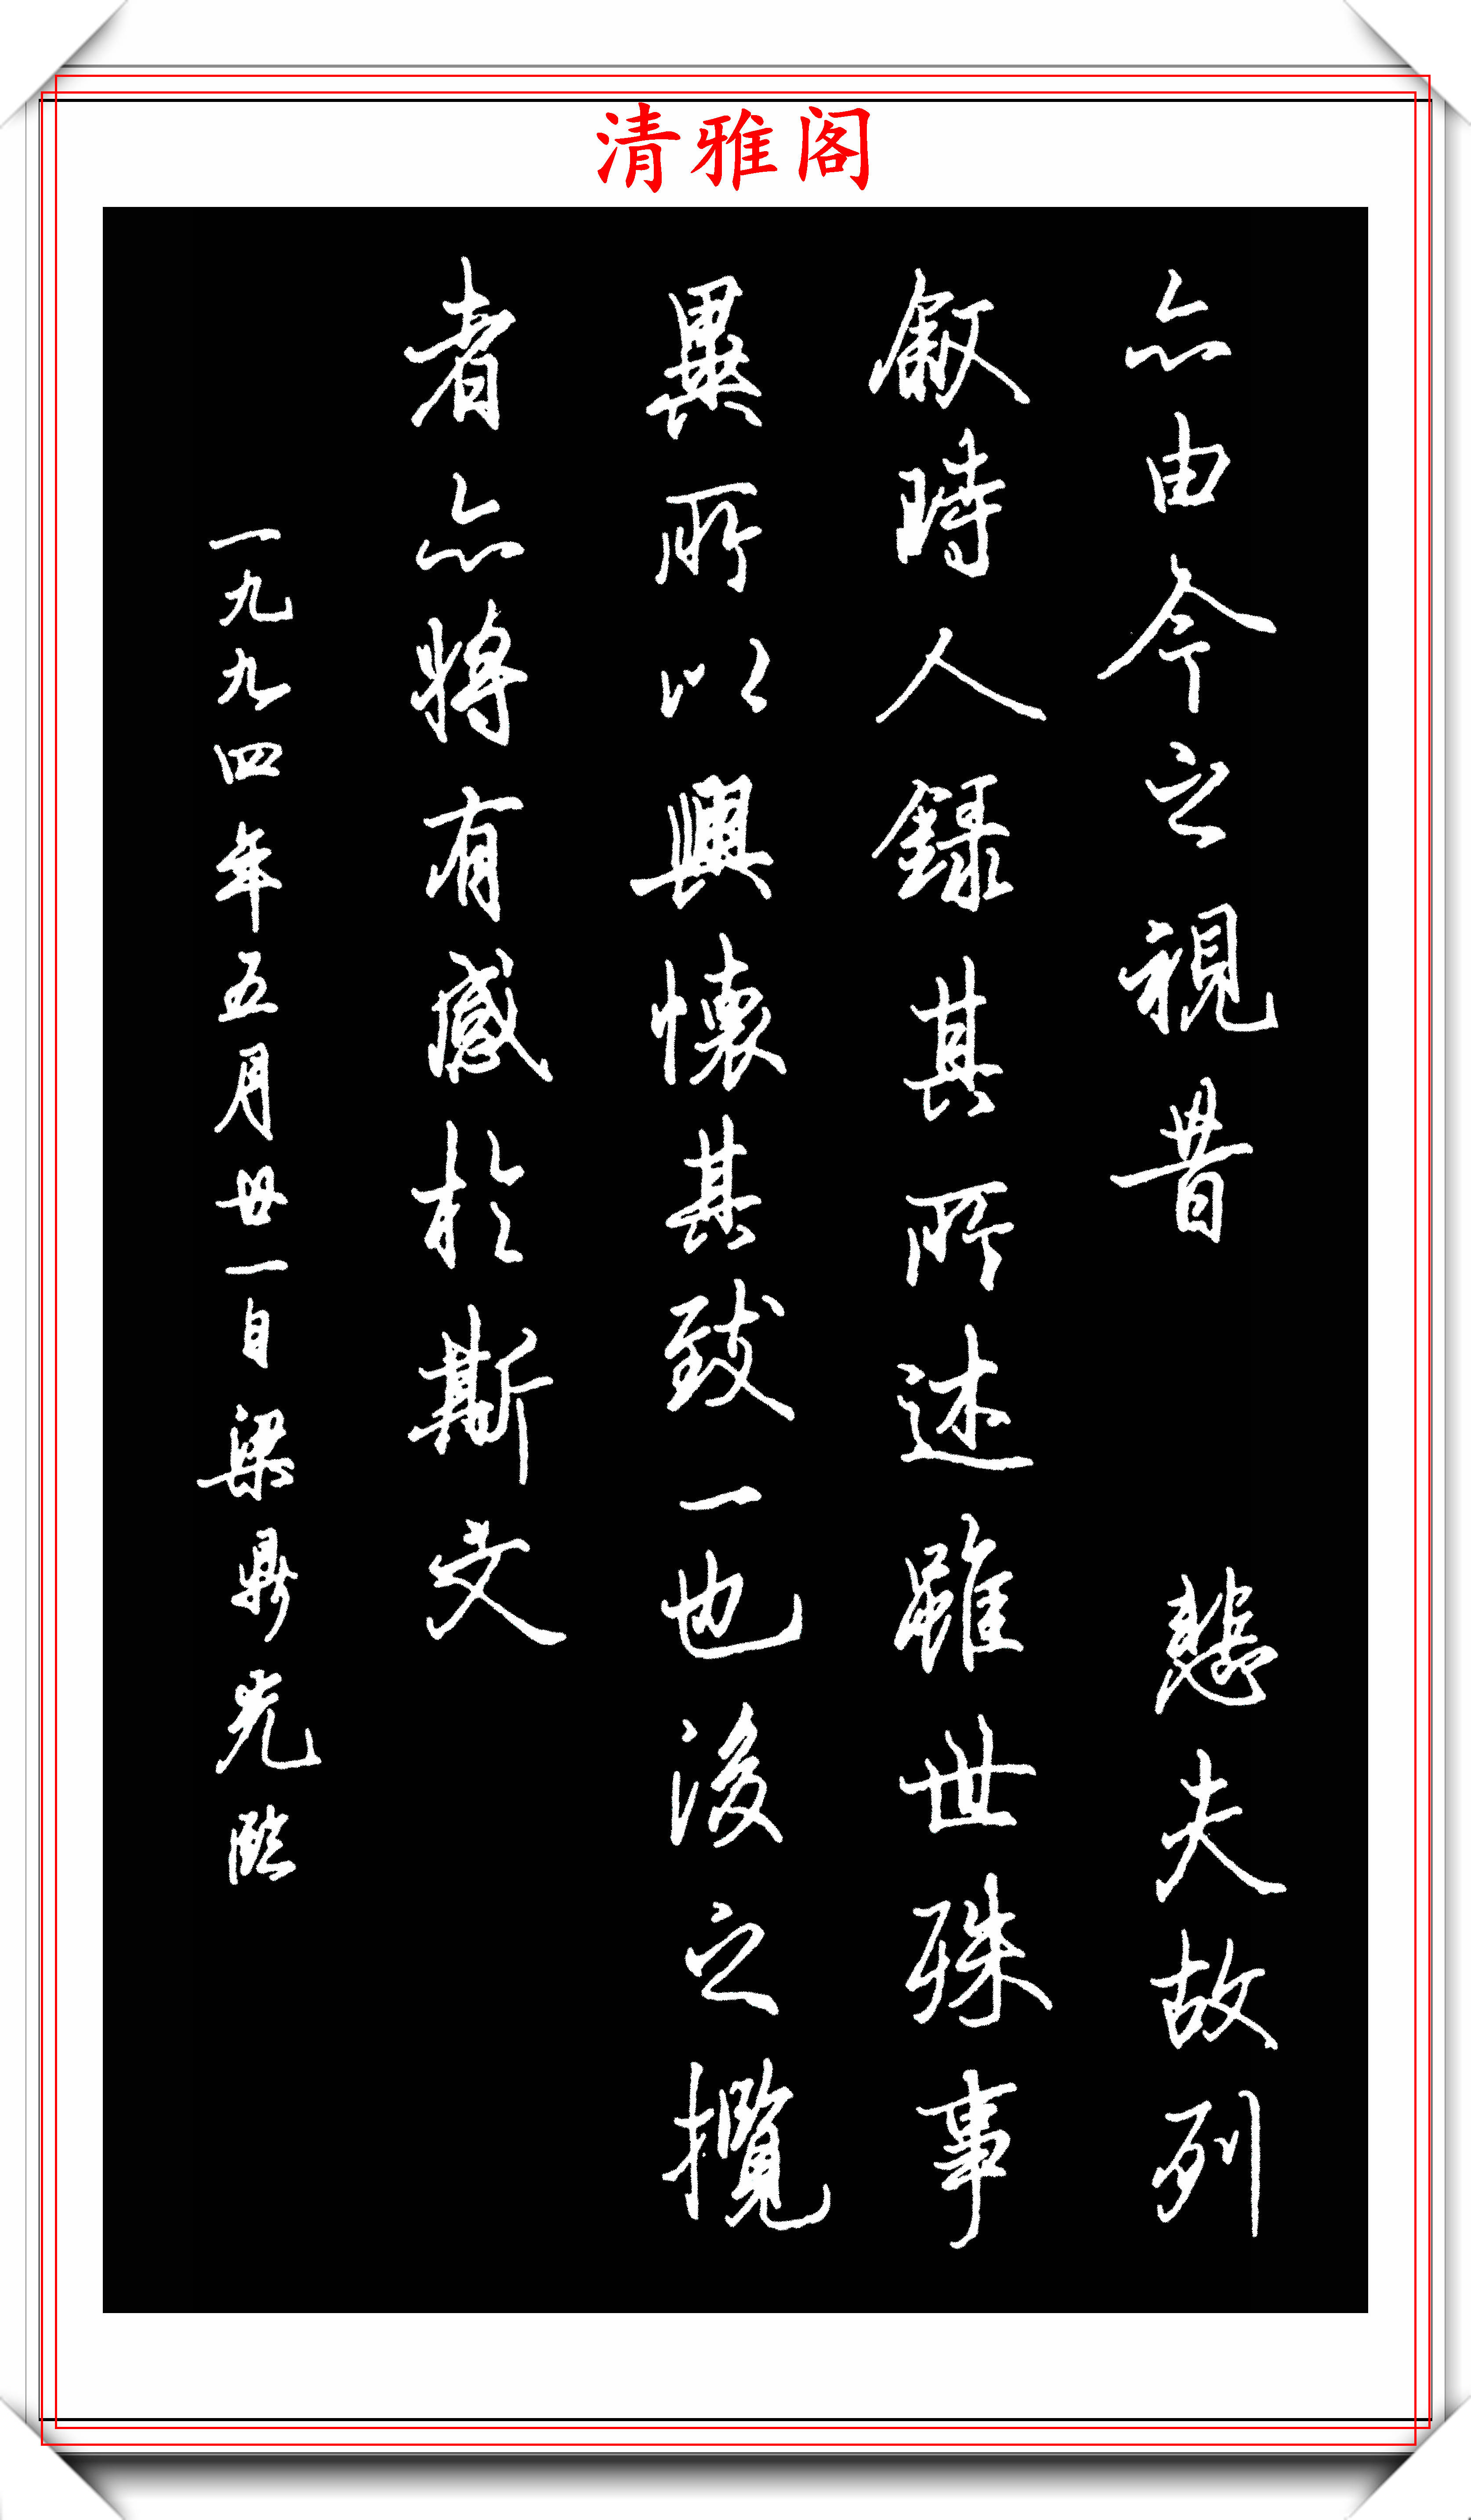 清雅阁
亦由今之視昔 悲夫故列
叙時人録其所述雖世殊事
異所以興懷其致一也後之攬
者亦將有感於斯文
一九九四年五月廿一日梁鼎光臨